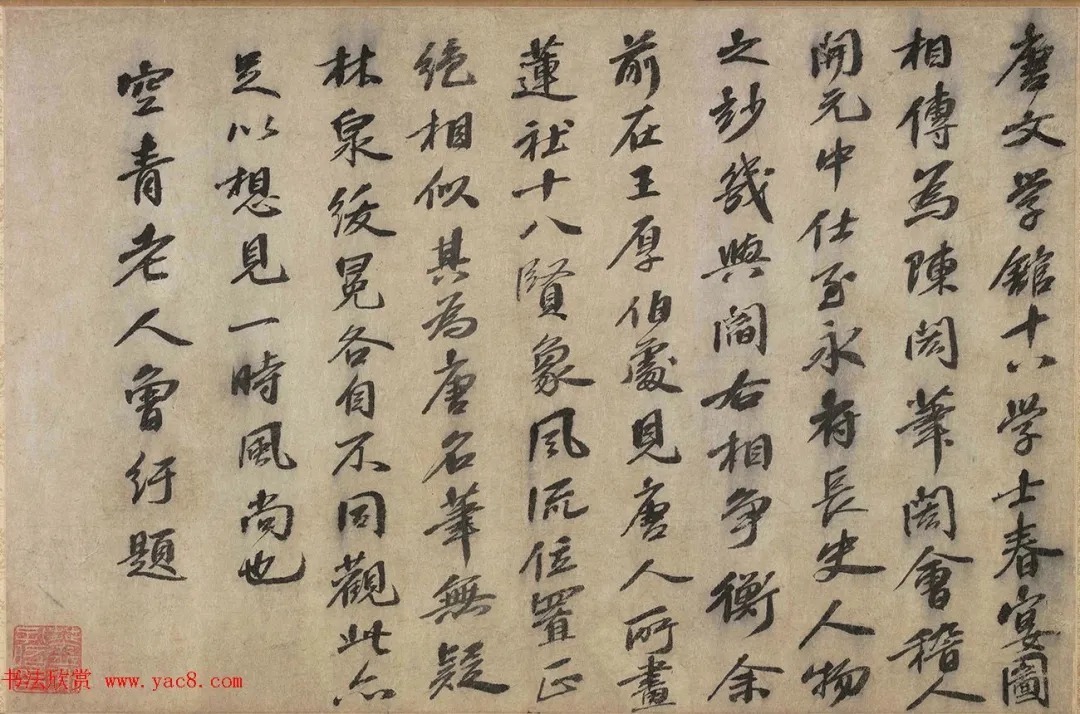 唐文学館十八学士春宴圖
相傳為陳閎筆閎會稽人
開元中仕至永府長史人物
之妙幾與閻右相争衡余
前在王厚伯處見唐人所畫
蓮社十八賢象風流位置正
絶相似其為唐名筆無疑
林泉綬冕各自不同觀此亦
足以想見一時風尚也
空青老人曾紆題
书法欣赏 www.yac8.com